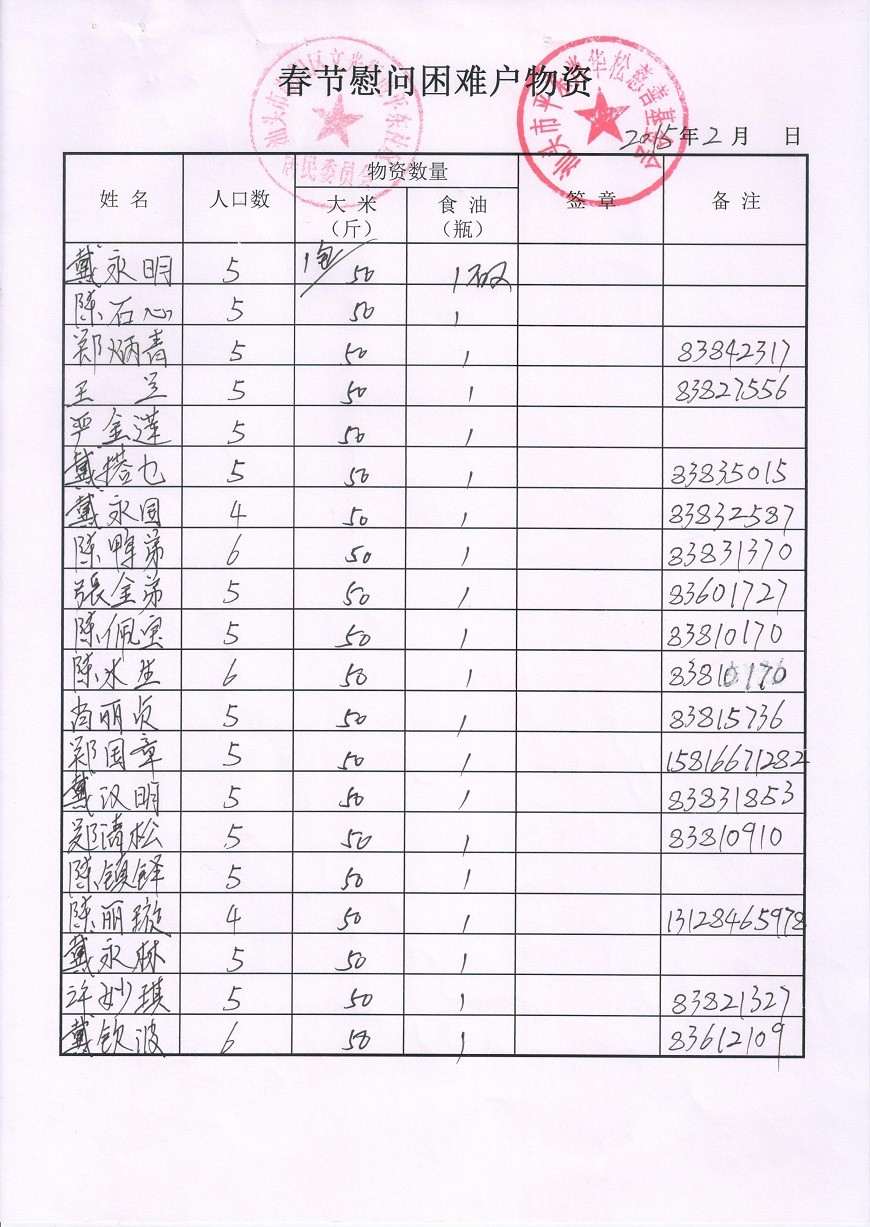 春节慰问困难户物资
2015年2月 日
姓名 人口数 物资数量 签章 备注
大米（斤） 食油（瓶）
戴永明 5 1包 50 1
陈石心 5 50 1
郑炳青 5 50 1 83842317
王兰 5 50 1 83827556
严金莲 5 50 1
戴搭乜 5 50 1 83835015
戴永国 4 50 1 83832587
陈鸭弟 6 50 1 83831370
張金弟 5 50 1 83601727
陈佩宝 5 50 1 83810170
陈水生 6 50 1 83810170
肖丽贞 5 50 1 83815736
郑国章 5 50 1 15816671282
戴汉明 5 50 1 83831853
郑清松 5 50 1 83810910
陈镇铎 5 50 1
陈丽璇 4 50 1 13128465978
戴永林 5 50 1
许妙琪 5 50 1 83821327
戴钦波 6 50 1 83612109